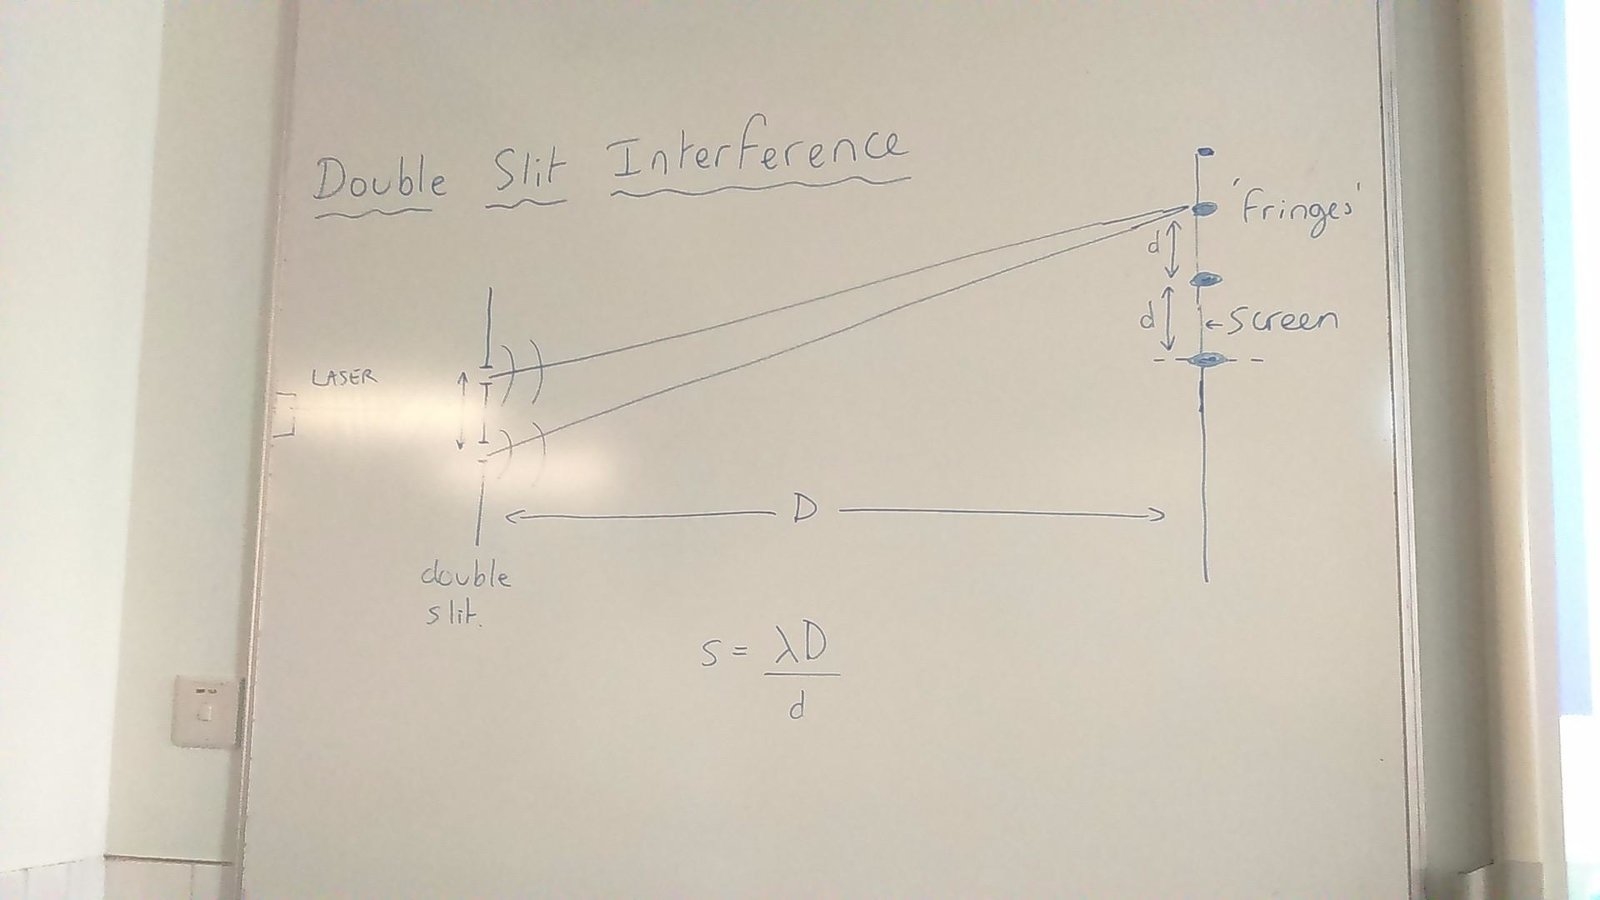 Double Slit Interference
'fringes'
d
d
← screen
LASER
D
double
slit.
s = λD
d